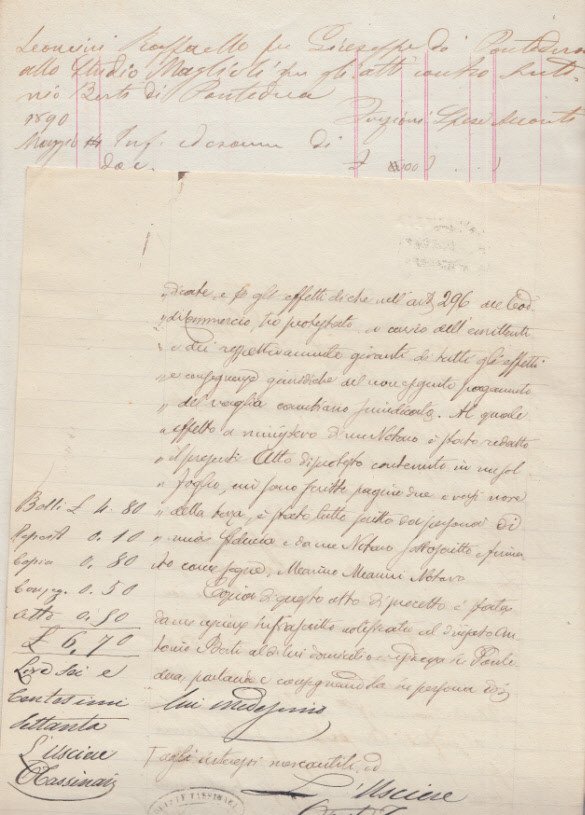 Leoncini Raffaello fu Giuseppe di Pontedera
allo Studio Maglioli per gli atti contro
Berti di Pontedera
1890 Funzioni Spese Acconti
Maggio 14 Inf. ed esame di
doc. £ 100
dicate, e p gli effetti di che nell' art. 296 del Cod.
di Commercio, ho protestato, a carico dell' emittente
e dei respettivamente giranti di tutti gli effetti
e conseguenze giuridiche del non seguito pagamento
del vaglia cambiario surindicato. Al quale
effetto a ministero di me Notaro è stato redatto
il presente Atto di protesto contenuto in un sol
foglio, cui sono scritte pagine due e righe nove
della terza, è stato tutto scritto da persona di
mia fiducia e da me Notaro sottoscritto e firma
to come segue, Notaro
Copia di questo atto di protesto è stata
da me usciere infrascritto notificata al Sigr. An
tonio Berti al di lui domicilio in Ponte
dera parlando e consegnandola in persona di
lui medesimo
Tagli interessi mercantili, di
L' Usciere
Bolli £ 4. 80
Repert 0. 10
Copia 0. 80
Conseg. 0. 50
Atto 0. 50
£ 6, 70
Lire Sei e
Centesimi
Settanta
L' Usciere